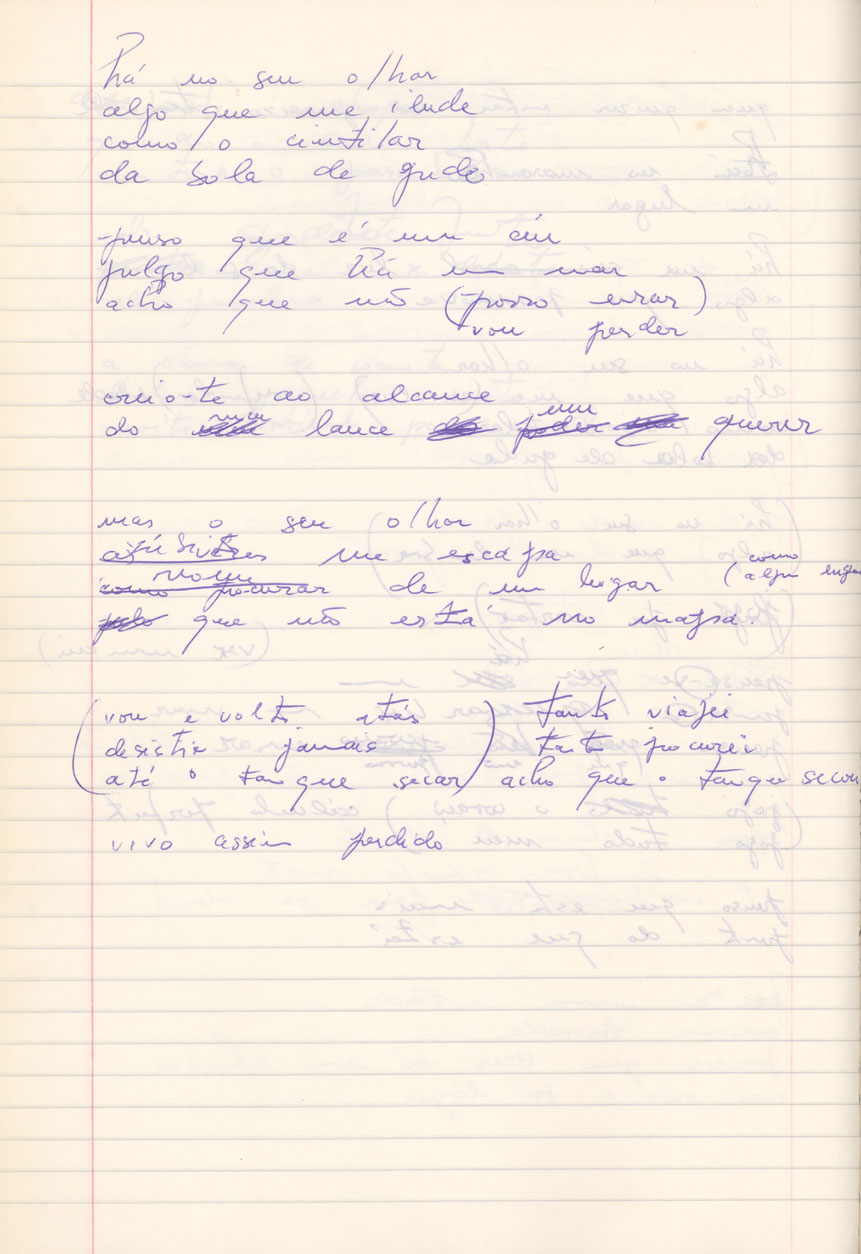 há no seu olhar
algo que me ilude
como o cintilar
da bola de gude
penso que é um céu
julgo que há um mar
acho que não (posso errar)
vou perder
creio-te ao alcance
do num lance poder um querer
mas o seu olhar
súbito me escapa
como procurar nome de um lugar (como algum lugar
pelo que não está no mapa.
(vou e volto atrás
desistir jamais
até o tanque secar)
tanto viajei
tanto procurei
acho que o tanque secou
vivo assim perdido